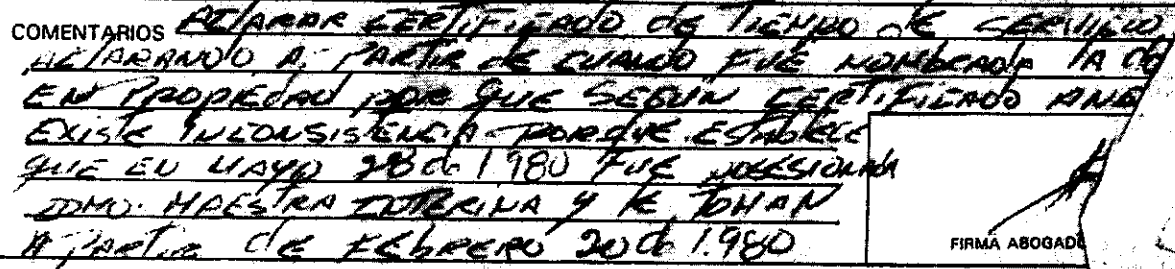 COMENTARIOS ACLARAR CERTIFICADO de TIEMPO de SERVICIO,
ACLARANDO A PARTIR DE CUANDO FUE NOMBRADA LA
EN PROPIEDAD POR QUE SEGUN CERTIFICADO
EXISTE INCONSISTENCIA PORQUE ESTABLECE
QUE EN MAYO 28 de 1.980 FUE POSESIONADA
COMO MAESTRA INTERINA Y LE TOMAN
A PARTIR de FEBRERO 20 de 1.980
FIRMA ABOGADO